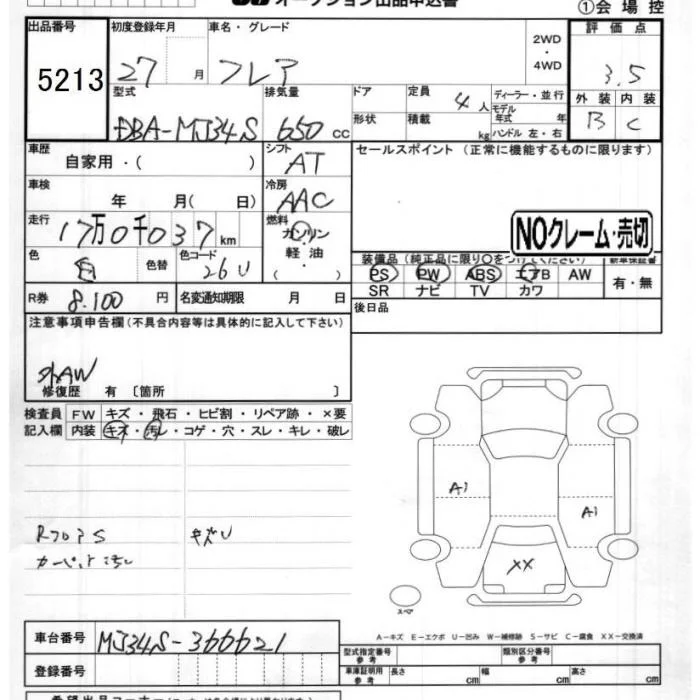 オークション出品申込書
①会場控
出品番号 初度登録年月 車名・グレード 評価点
5213 27 月 フレア 2WD・4WD 3.5
型式 排気量 ドア 定員 4人 ディーラー・並行 外装 内装
DBA-MJ34S 650 cc 形状 積載 kg モデル年式 年 ハンドル 左・右 B C
車歴 シフト セールスポイント (正常に機能するものに限ります)
自家用・( ) AT
車検 年 月( 日) 冷房 AAC
走行 17万0千037 km 燃料 ガソリン・軽油・( ) NOクレーム・売切
色 白 色替 色コード 26U 装備品 (純正品に限り○をつけてください) 新車保証書
PS PW ABS エアB AW 有・無
SR ナビ TV カワ
R券 8.100 円 名変通知期限 月 日 後日品
注意事項申告欄(不具合内容等は具体的に記入して下さい)
外AW
修復歴 有〔箇所 〕
検査員 FW キズ・飛石・ヒビ割・リペア跡・×要
記入欄 内装 キズ・汚レ・コゲ・穴・スレ・キレ・破レ
A1
A1
RフロアS キズU
カーペット汚レ
XX
スペア
A-キズ E-エクボ U-凹み W-補修跡 S-サビ C-腐食 XX-交換済
車台番号 MJ34S-366621
型式指定番号 参考 類別区分番号 参考
登録番号 車庫証明用 参考 長さ cm 幅 cm 高さ cm